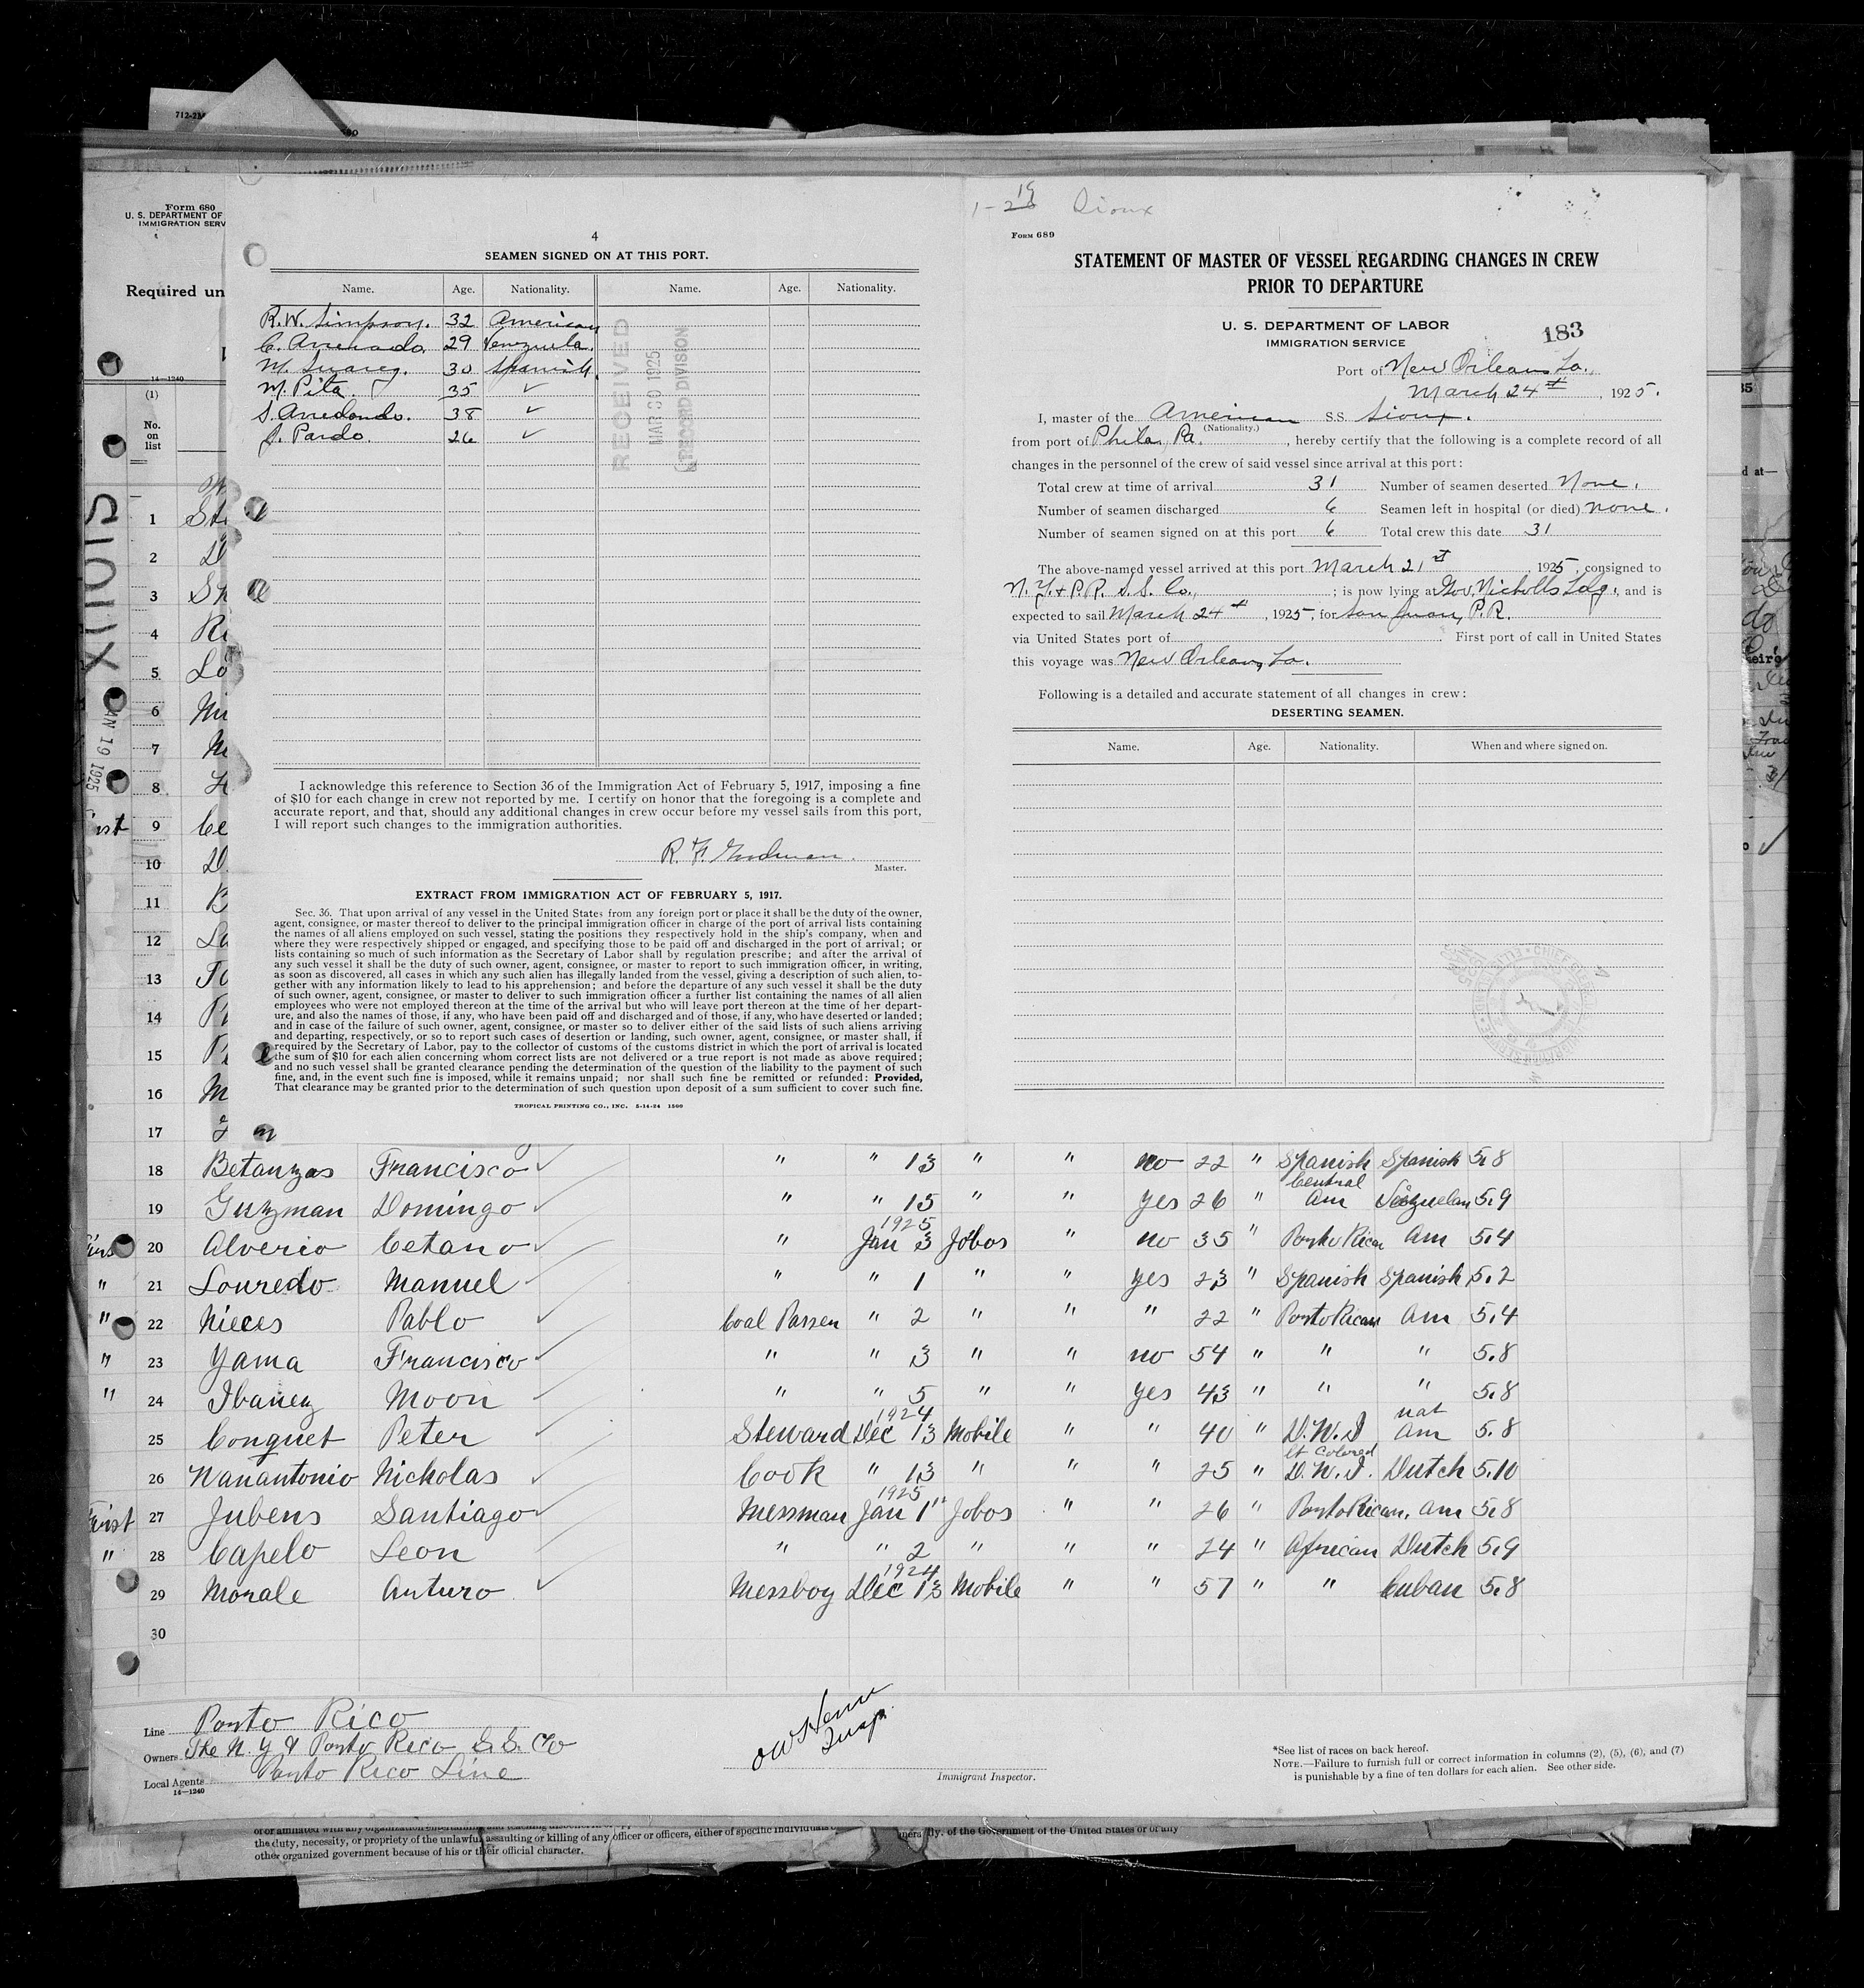 712-2M
Form 680
U. S. DEPARTMENT OF
IMMIGRATION SERV
Required un
14—1240
(1)
No.
on
list
SIOUX
JAN 19 1925
4
SEAMEN SIGNED ON AT THIS PORT.
Name. Age. Nationality. Name. Age. Nationality.
R.W. Simpson. 32 American
29 Venezuela.
M. Suarez. 30 Spanish.
M. Pita. 35 ✓
S. Arredondo. 38 ✓
J. Pardo. 26 ✓
RECEIVED
MAR 30 1925
RECORD DIVISION
I acknowledge this reference to Section 36 of the Immigration Act of February 5, 1917, imposing a fine
of $10 for each change in crew not reported by me. I certify on honor that the foregoing is a complete and
accurate report, and that, should any additional changes in crew occur before my vessel sails from this port,
I will report such changes to the immigration authorities.
R. F.
Master.
EXTRACT FROM IMMIGRATION ACT OF FEBRUARY 5, 1917.
Sec. 36. That upon arrival of any vessel in the United States from any foreign port or place it shall be the duty of the owner,
agent, consignee, or master thereof to deliver to the principal immigration officer in charge of the port of arrival lists containing
the names of all aliens employed on such vessel, stating the positions they respectively hold in the ship's company, when and
where they were respectively shipped or engaged, and specifying those to be paid off and discharged in the port of arrival; or
lists containing so much of such information as the Secretary of Labor shall by regulation prescribe; and after the arrival of
any such vessel it shall be the duty of such owner, agent, consignee, or master to report to such immigration officer, in writing,
as soon as discovered, all cases in which any such alien has illegally landed from the vessel, giving a description of such alien, to-
gether with any information likely to lead to his apprehension; and before the departure of any such vessel it shall be the duty
of such owner, agent, consignee, or master to deliver to such immigration officer a further list containing the names of all alien
employees who were not employed thereon at the time of the arrival but who will leave port thereon at the time of her depart-
ure, and also the names of those, if any, who have been paid off and discharged and of those, if any, who have deserted or landed;
and in case of the failure of such owner, agent, consignee, or master so to deliver either of the said lists of such aliens arriving
and departing, respectively, or so to report such cases of desertion or landing, such owner, agent, consignee, or master shall, if
required by the Secretary of Labor, pay to the collector of customs of the customs district in which the port of arrival is located
the sum of $10 for each alien concerning whom correct lists are not delivered or a true report is not made as above required;
and no such vessel shall be granted clearance pending the determination of the question of the liability to the payment of such
fine, and, in the event such fine is imposed, while it remains unpaid; nor shall such fine be remitted or refunded: Provided,
That clearance may be granted prior to the determination of such question upon deposit of a sum sufficient to cover such fine.
TROPICAL PRINTING CO., INC. 5-14-24 1500
Sioux
Form 689
STATEMENT OF MASTER OF VESSEL REGARDING CHANGES IN CREW
PRIOR TO DEPARTURE
U. S. DEPARTMENT OF LABOR
IMMIGRATION SERVICE
183
Port of New Orleans La.,
March 24th, 1925.
I, master of the American S.S. Sioux.
(Nationality.)
from port of Phila, Pa., hereby certify that the following is a complete record of all
changes in the personnel of the crew of said vessel since arrival at this port:
Total crew at time of arrival 31 Number of seamen deserted None.
Number of seamen discharged 6 Seamen left in hospital (or died) none.
Number of seamen signed on at this port 6 Total crew this date 31
The above-named vessel arrived at this port March 21st, 1925, consigned to
N. Y. & P.R. S.S. Co., ; is now lying at Gov. Nicholls Ldg., and is
expected to sail March 24th, 1925, for San Juan, P.R.
via United States port of . First port of call in United States
this voyage was New Orleans, La.
Following is a detailed and accurate statement of all changes in crew:
DESERTING SEAMEN.
Name. Age. Nationality. When and where signed on.
1
2
3
4
5
6
7
8
9
10
11
12
13
14
15
16
17
18 Betanzos Francisco ✓ " " 13 " " no 22 " Spanish Spanish 5.8
19 Guzman Domingo ✓ " " 15 " " yes 26 " Central Am 5.9
20 Alverio Cetano ✓ " 1925 Jan 3 Jobos " no 35 " Porto Rican Am 5.4
" 21 Louredo Manuel ✓ " " 1 " " yes 23 " Spanish Spanish 5.2
" 22 Nieces Pablo ✓ Coal Passer " 2 " " " 22 " Porto Rican Am 5.4
" 23 Yama Francisco ✓ " " 3 " " no 54 " " " 5.8
" 24 Ibanez Moon ✓ " " 5 " " yes 43 " " " 5.8
25 Conquet Peter ✓ Steward 1924 Dec 13 Mobile " " 40 " D.W.I nat Am 5.8
26 Wanantonio Nickolas ✓ Cook " 13 " " " 25 " lt Colored D.W.I. Dutch 5.10
First 27 Jubens Santiago ✓ Messman 1925 Jan 1 Jobos " " 26 " Porto Rican. Am 5.8
" 28 Capelo Leon ✓ " " 2 " " " 24 " African Dutch 5.9
29 Morale Arturo ✓ Messboy 1924 Dec 13 Mobile " " 57 " " Cuban 5.8
30
Line Porto Rico
Owners The N.Y & Porto Rico S.S. Co
Local Agents Porto Rico Line
14—1240
Insp.
Immigrant Inspector.
*See list of races on back hereof.
NOTE.—Failure to furnish full or correct information in columns (2), (5), (6), and (7)
is punishable by a fine of ten dollars for each alien. See other side.
the duty, necessity, or propriety of the unlawful assaulting or killing of any officer or officers, either of specific individuals
of the Government of the United States or of any
other organized government because of his or their official character.